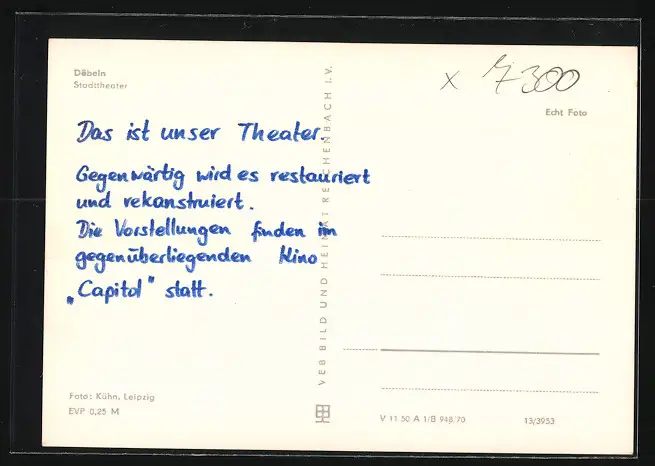 Döbeln
Stadttheater
x 7300
Echt Foto
Das ist unser Theater.
Gegenwärtig wird es restauriert
und rekonstruiert.
Die Vorstellungen finden im
gegenüberliegenden Kino
„Capitol" statt.
VEB BILD UND HEIMAT REICHENBACH I.V.
Foto: Kühn, Leipzig
EVP 0,25 M
V 11 50 A 1/B 948/70
13/3953